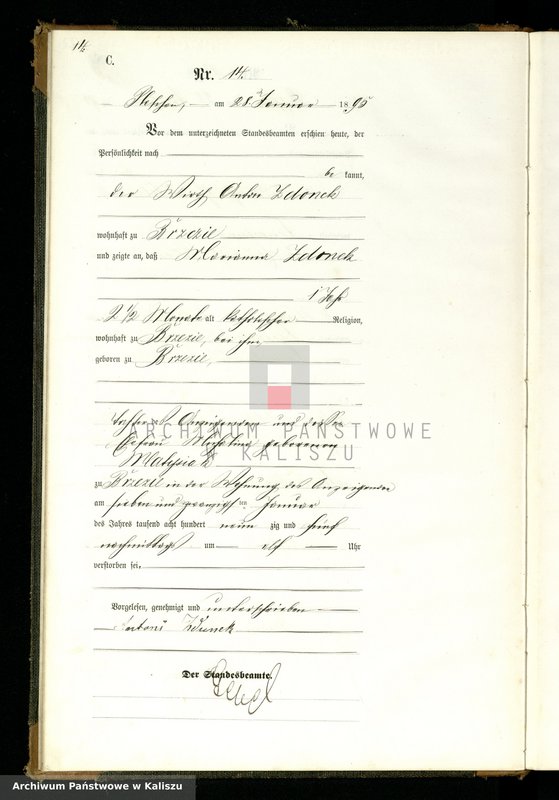 14
C.
Nr. 14.
Pleschen, am 28. Januar 1895
Vor dem unterzeichneten Standesbeamten erschien heute, der
Persönlichkeit nach
be kannt,
der Wirth Anton Zdonek
wohnhaft zu Brzezie
und zeigte an, daß Marianna Zdonek
1 Jahr
2 1/2 Monate alt katholischer Religion,
wohnhaft zu Brzezie, bei ihm
geboren zu Brzezie,
Tochter des Anzeigenden und dessen
Ehefrau geborenen
zu Brzezie in der Wohnung des Anzeigenden
am sieben und zwanzigsten Januar
des Jahres tausend acht hundert neun zig und fünf
nachmittags um elf Uhr
verstorben sei.
Vorgelesen, genehmigt und unterschrieben
Antoni Zdunek
Der Standesbeamte.
ARCHIWUM PAŃSTWOWE
W KALISZU
Archiwum Państwowe w Kaliszu